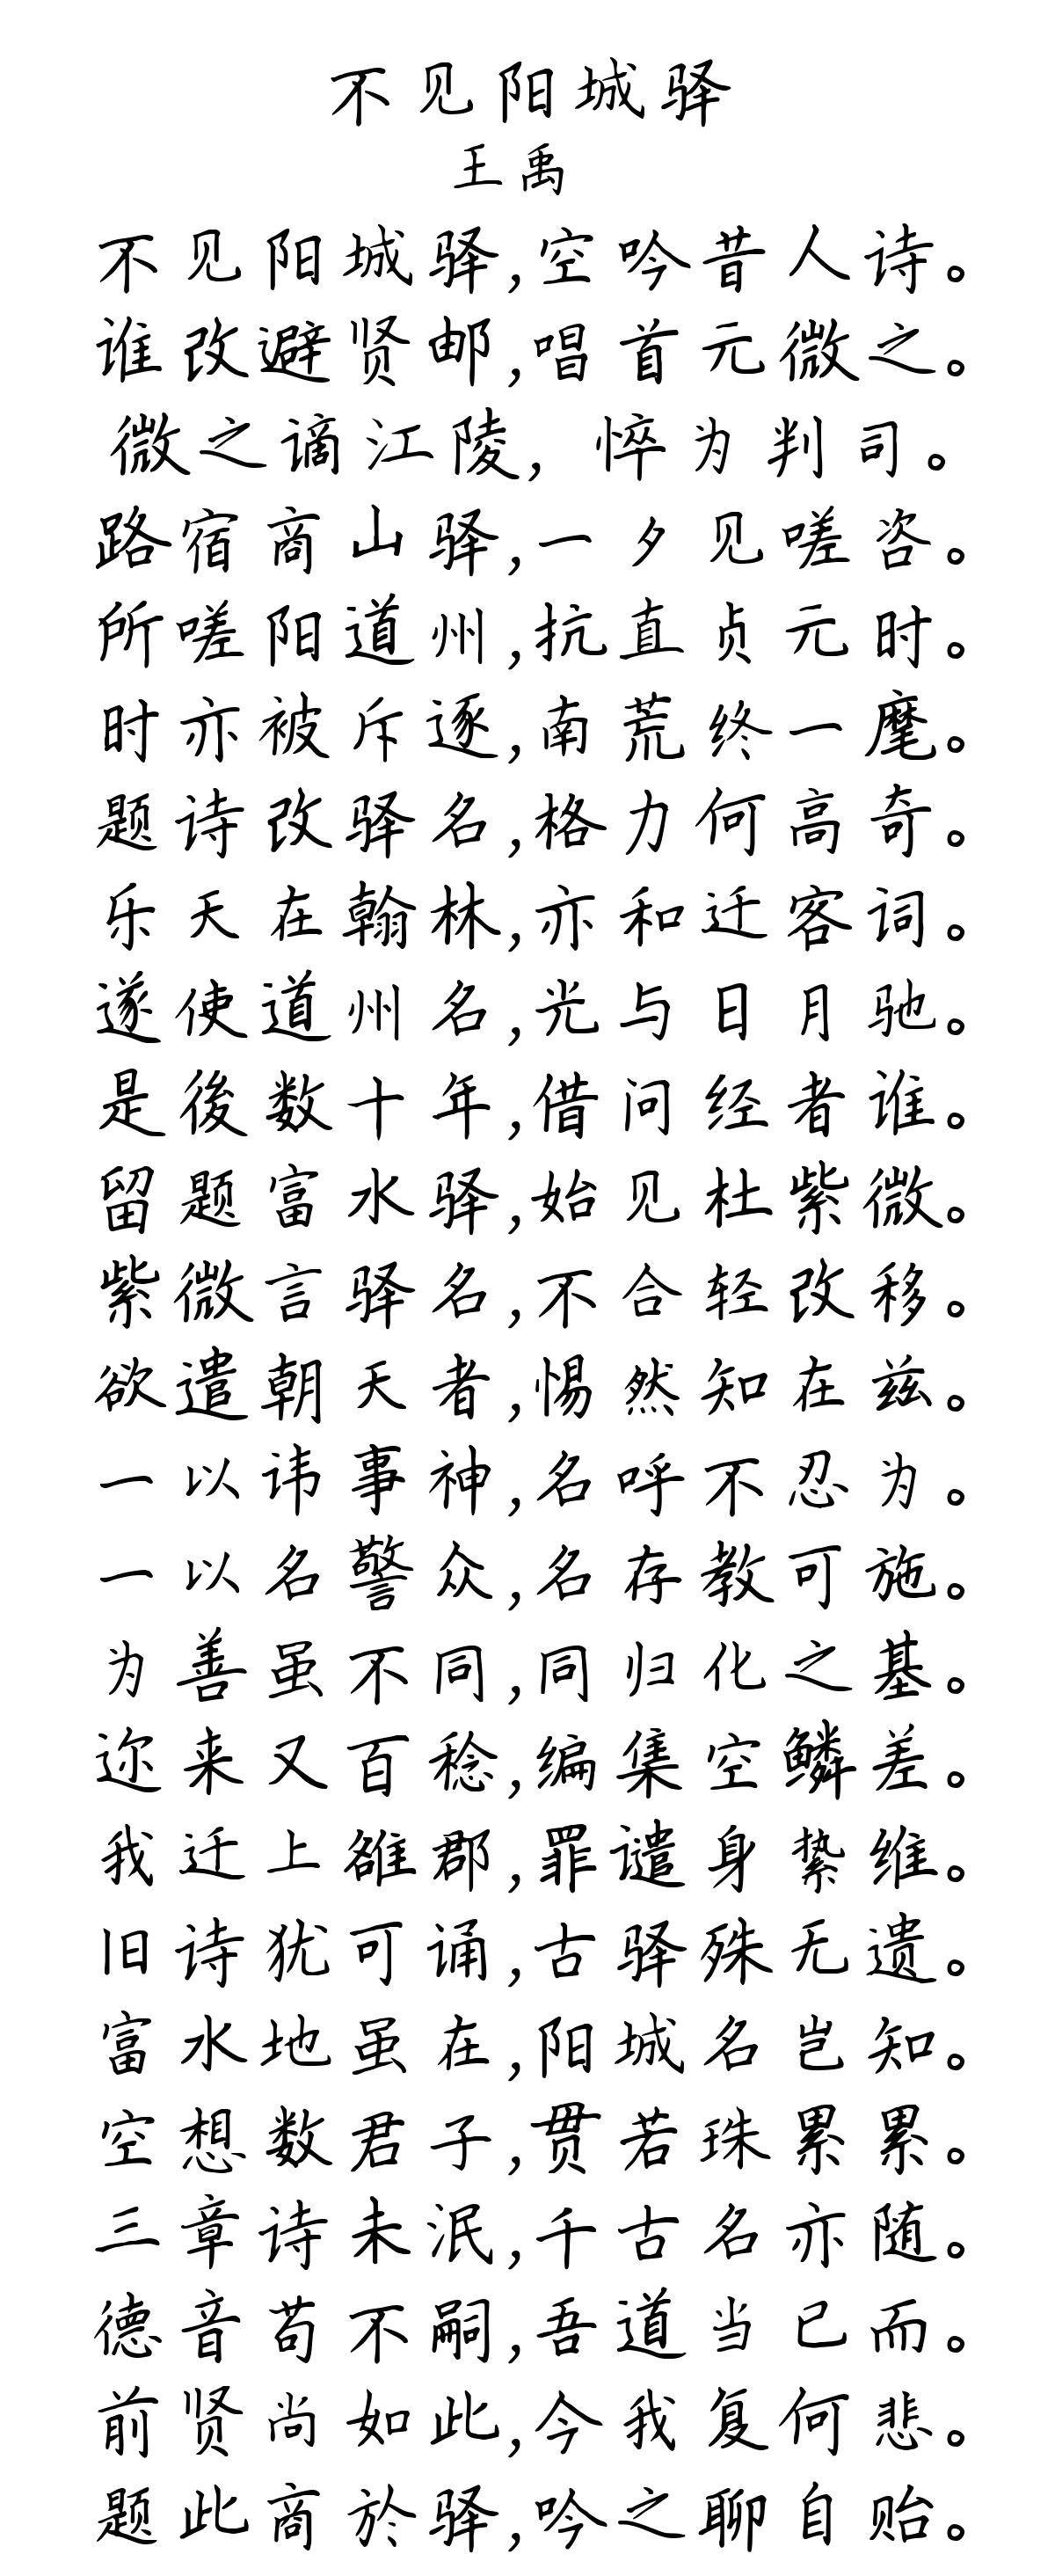 不见阳城驿
王禹
不见阳城驿,空吟昔人诗。
谁改避贤邮,唱首元微之。
微之谪江陵,悴为判司。
路宿商山驿,一夕见嗟咨。
所嗟阳道州,抗直贞元时。
时亦被斥逐,南荒终一麾。
题诗改驿名,格力何高奇。
乐天在翰林,亦和迁客词。
遂使道州名,光与日月驰。
是後数十年,借问经者谁。
留题富水驿,始见杜紫微。
紫微言驿名,不合轻改移。
欲遣朝天者,惕然知在兹。
一以讳事神,名呼不忍为。
一以名警众,名存教可施。
为善虽不同,同归化之基。
迩来又百稔,编集空鳞差。
我迁上雒郡,罪谴身絷维。
旧诗犹可诵,古驿殊无遗。
富水地虽在,阳城名岂知。
空想数君子,贯若珠累累。
三章诗未泯,千古名亦随。
德音苟不嗣,吾道当已而。
前贤尚如此,今我复何悲。
题此商於驿,吟之聊自贻。